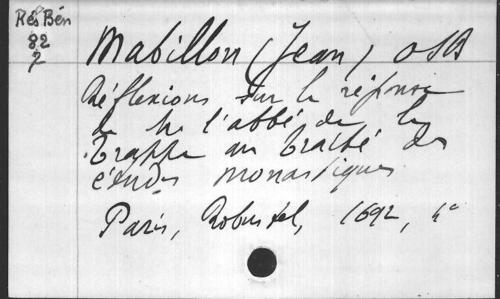 Rés Bén
82
2
Mabillon (Jean) OSB
Réflexions sur la réponse
de Mr l'abbé de la
Trappe au traité des
études monastiques
Paris, Robustel, 1692, 4°